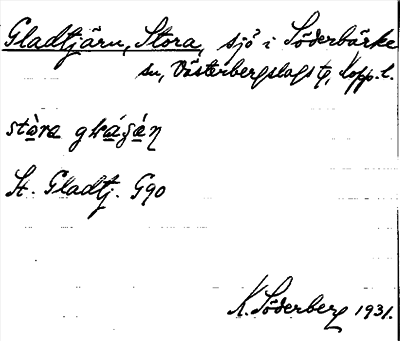 Gladtjärn, Stora, sjö i Söderbärke
sn, Västerbergslags tg, Kopp. l.
stòra
St. Gladtj. G90
K. Söderberg 1931.